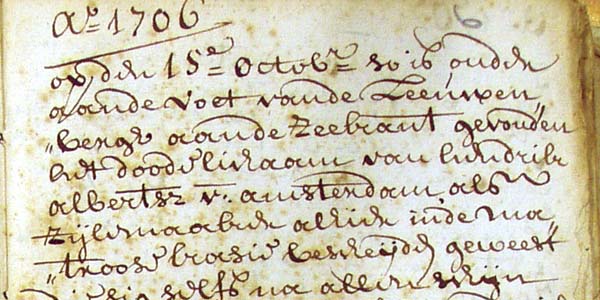 Aº 1706
op den 15e Octobr so is onder
aande voet vande Leeuwen
„berge aande Zeekant gevonden
het doode lichaam van hendrik
albertsz v: amsterdam, als
zijlemaaker alhier inde ma
„troose basie bescheijden geweest
die sig selfs na allen schijn